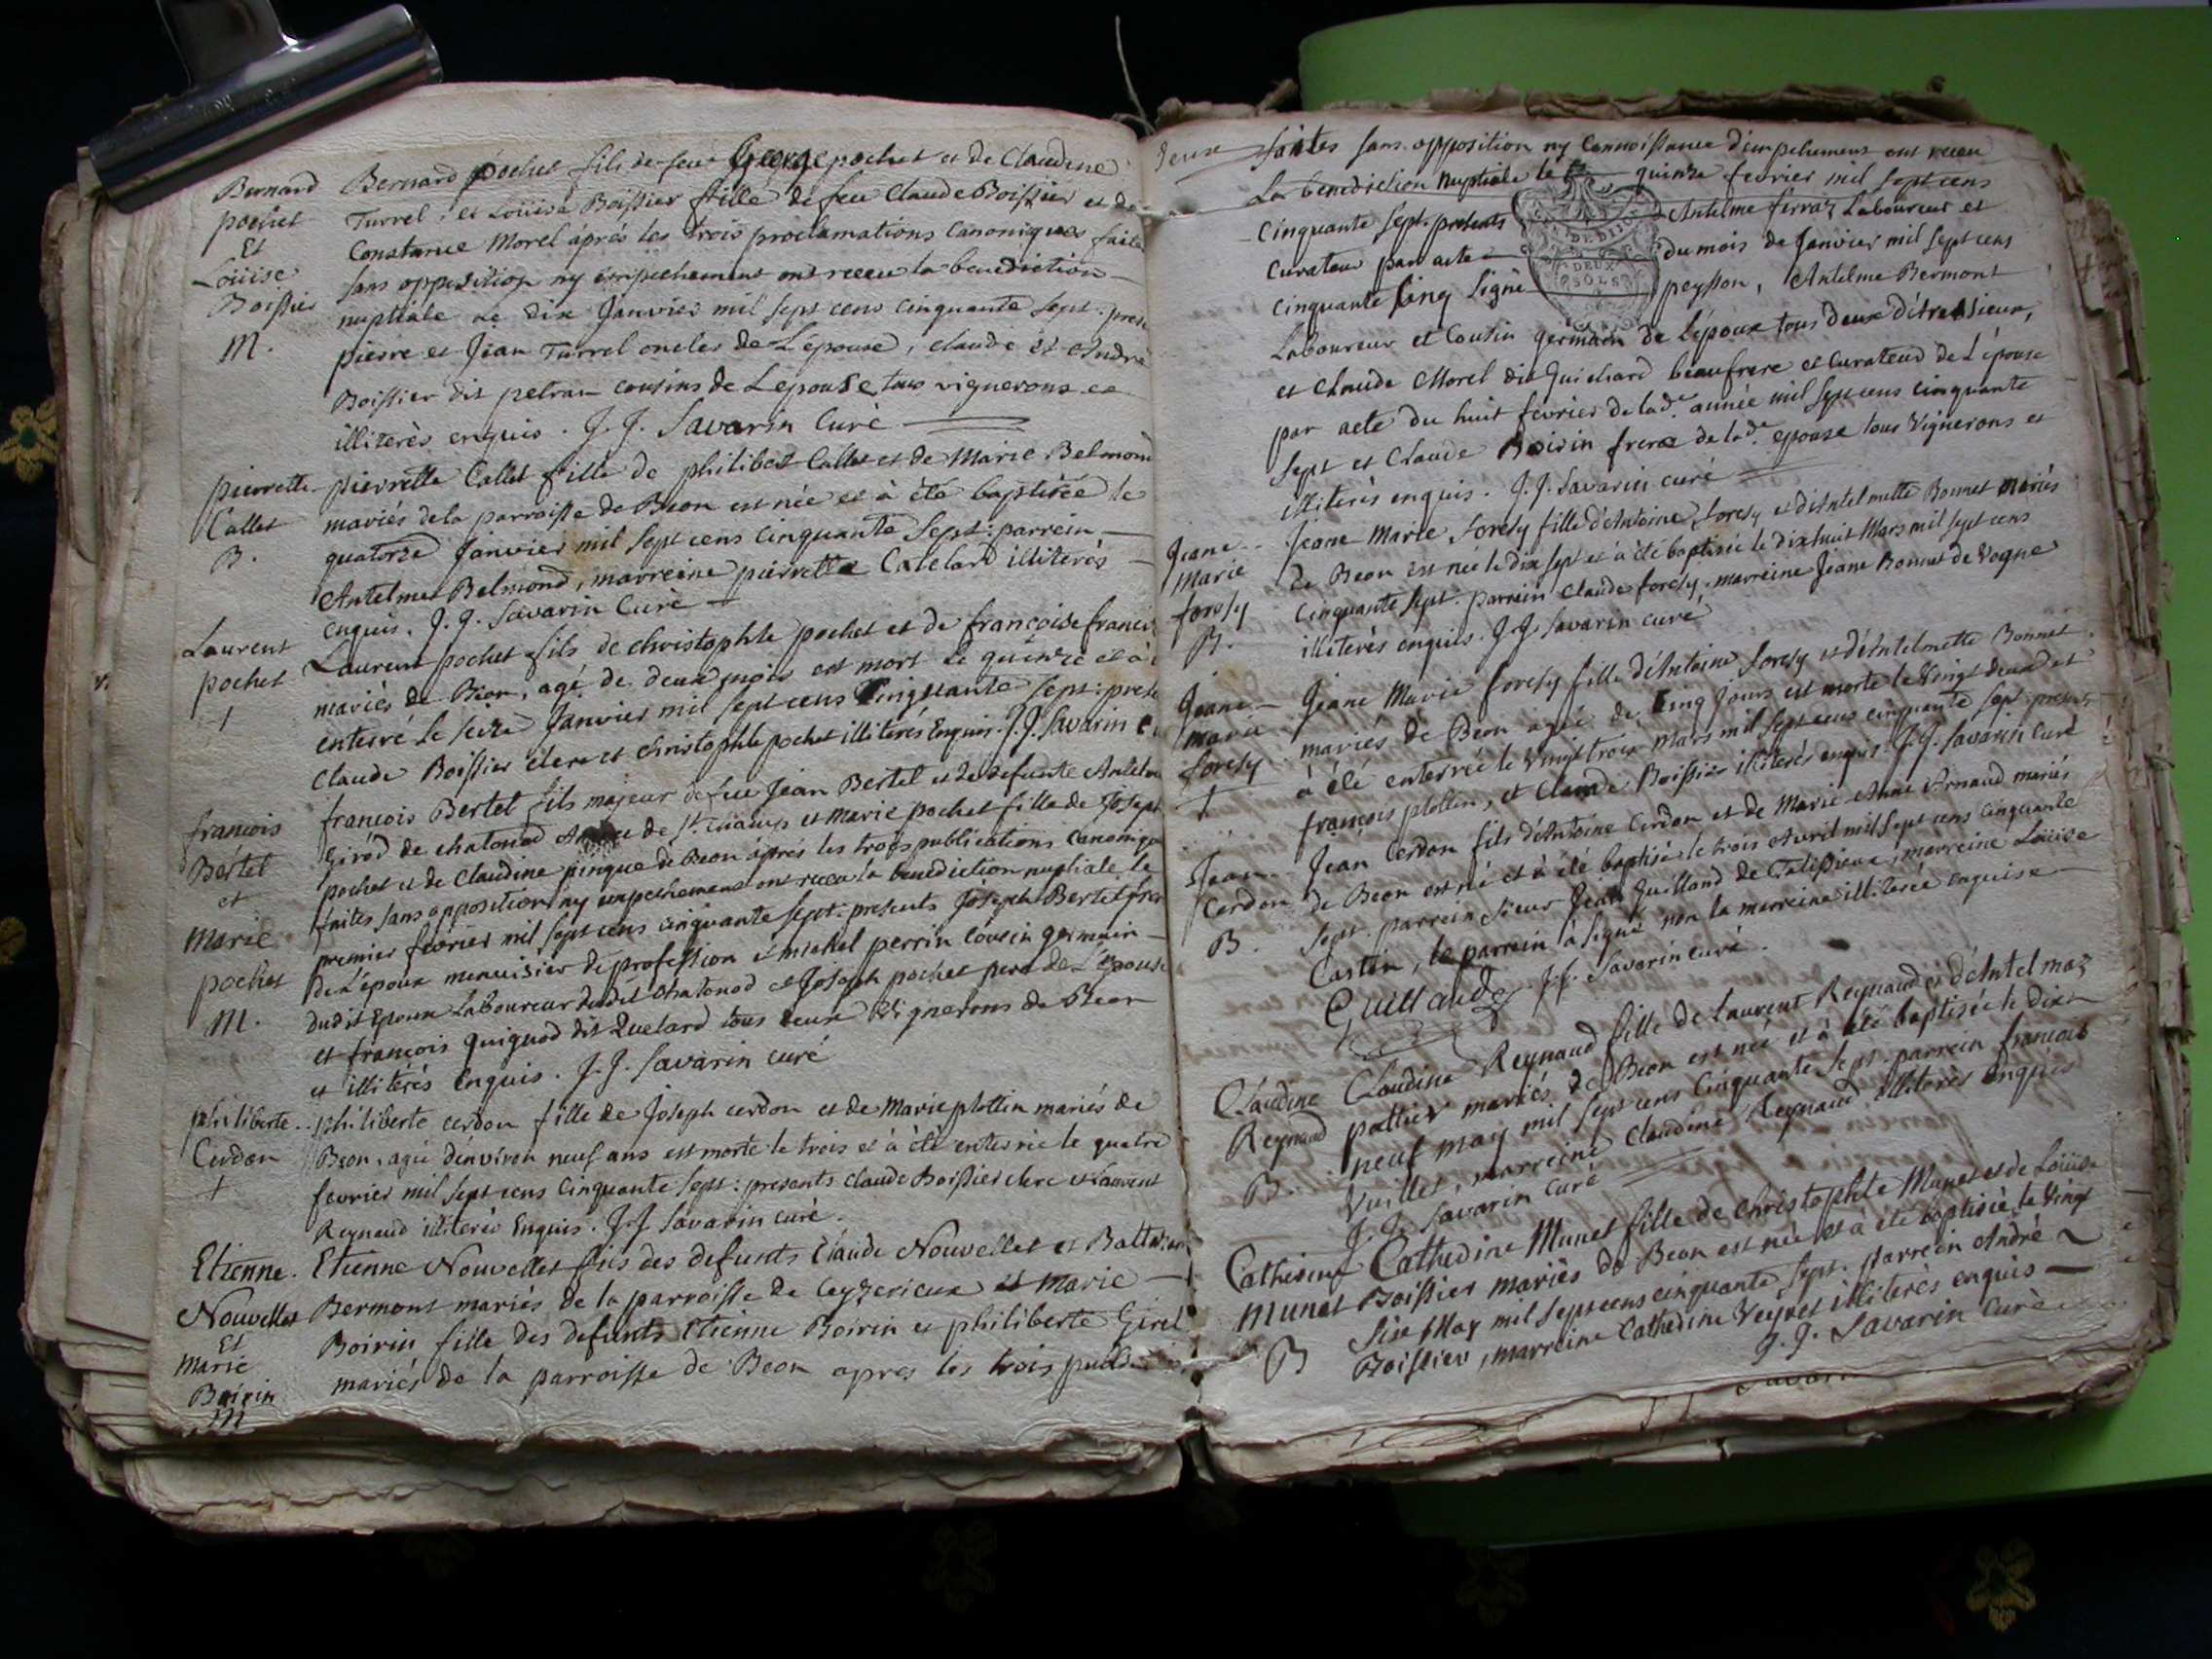 Bernard
pochet
Et
Loüise
Boissier
M.
Bernard pochet fils de feu George pochet et de Claudine
Turrel, et Loüise Boissier fille de feu Claude Boissier et de
Constance Morel àprés les trois proclamations Canoniques faite
sans opposition ny empechement ont receu la benediction
nuptiale le dix Janvier mil sept cens cinquante sept. prese
pierre et Jean Turrel oncles de L'epouse, claude et André
Boissier dit petran cousins de L'epouse tous vignerons et
illiterès enquis. J. J. Savarin Curè
pierrette
Callet
B.
pierrette Callet fille de philibert Callet et de Marie Belmond
mariés de la parroisse de Beon est née et à été baptisée le
quatorze Janvier mil sept cens Cinquante Sept: parrein
Antelme Belmond, marreine pierrette Catelard illiterés
enquis. J. J. Savarin Curè
Laurent
pochet
†
Laurent pochet fils de christophle pochet et de françoise franci
mariés de Beon, agé de deux mois est mort le quinze et à
enterré le seize Janvier mil sept cens Cinquante sept: prese
Claude Boissier clerc et christophle pochet illiterés Enquis. J. J. Savarin C
francois
Bertet
et
Marie
pochet
M.
françois Bertet fils majeur de feu Jean Bertet et de defunte Antelm
Girod de chatonod de St. champ et Marie pochet fille de Joseph
pochet et de Claudine pingue de Beon àprés les trois publications Canoniqu
faites sans opposition ny empechement ont receu la benediction nuptiale le
premier fevrier mil sept cens cinquante sept: presents Joseph Bertet frer
de L'époux menuisier de profession et michel perrin cousin germain
dudit Epoux Laboureur dudit chatonod et Joseph pochet pere de L'épouse
et françois quiquod dit Quelard tous deux Vignerons de Beon
et illitérés enquis. J. J. Savarin curé
philiberte
Cerdon
†
philiberte cerdon fille de Joseph cerdon et de Marie plottin mariés de
Beon, agée d'environ neuf ans est morte le trois et à été enterrée le quatre
fevrier mil sept cens Cinquante sept: presents claude Boissier clerc et Laurent
Reynaud illiterés Enquis. J. J. Savarin curé.
Etienne
Nouvellet
Et
Marie
Boirin
M
Etienne Nouvellet fils des defunts Claude Nouvellet et
Bermont mariés de la parroisse de Ceyzerieux et Marie
Boirin fille des defunts Etienne Boirin et philiberte Girel
mariés de la parroisse de Beon apres les trois
deux
faites sans opposition ny Connoissance d'empechement ont receu
La benediction Nuptiale le quinze fevrier mil sept cens
Cinquante sept. presents Antelme ferraz Laboureur et
Curateur par acte du mois de Janvier mil sept cens
cinquante cinq Signé peysson, Antelme Bermont
DEUX
SOLS
Laboureur et Cousin germain de L'époux tous deux
et Claude Morel dit Guichard beaufrere et Curateur de L'épouse
par acte du huit fevrier de lade. année mil sept cens cinquante
sept et Claude Boirin frere de lade. epouse tous Vignerons et
illiterés enquis. J. J. Savarin curé
Jeane
Marie
foresy
B.
Jeane Marie foresy fille d'Antoine foresy et d'Antelmette Bonnet mariés
de Beon est née le dix sept et à été baptisée le dix huit Mars mil sept cens
Cinquante sept. parrein Claude foresy, marreine Jeane Bonnet de Vogne
illiterés enquis. J. J. Savarin curé
Jeane
marie
foresy
†
Jeane Marie foresy fille d'Antoine foresy et d'Antelmette Bonnet
mariés de Beon agée de Cinq Jours est morte le Vingt deux et
à été enterrée le vingt trois Mars mil sept cens cinquante sept. presents
françois plottin, et Claude Boissier illiterés enquis. J. J. Savarin Curé
Jean
Cerdon
B.
Jean Cerdon fils d'Antoine Cerdon et de Marie Anne Arnaud mariés
de Beon est né et à été baptisé le trois Avril mil sept cens cinquante
sept. parrein sieur Jean Guilland de Talissieux, marreine Loüise
Castin, le parrein à signé non la marreine illiterée enquise
Guilland J. J. Savarin curé.
Claudine
Reynaud
B.
Claudine Reynaud fille de Laurent Reynaud et d'Antelmaz
pottier mariés de Beon est née et à été baptisée le dix
neuf may mil sept cens cinquante sept. parrein francois
Vuillet, marreine Claudine Reynaud illiterés Enquis
J. J. Savarin Curé
Catherine
Munet
B
Catherine Munet fille de Christophle Munet et de Loüise
Boissier mariés de Beon est née et à été baptisée le Vingt
Sixe May mil sept cens cinquante sept. parrein André
Boissier, marreine Catherine Veyret illiterés enquis
J. J. Savarin Curé